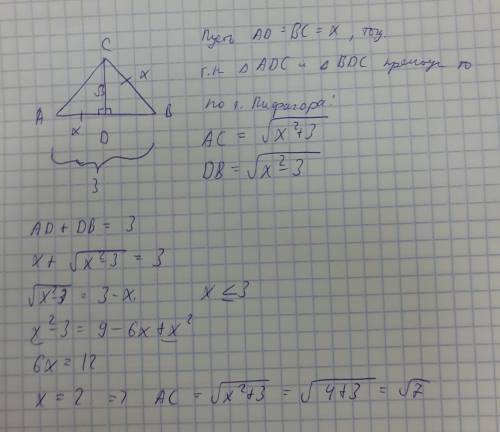 C
√3
x
A
x
D
B
3
Пусть AD = BC = x, тогд.
т.к △ADC и △BDC прямоуг то
по т. Пифагора:
AC = √(x²+3)
DB = √(x²-3)
AD + DB = 3
x + √(x²-3) = 3
√(x²-3) = 3-x, x ≤ 3
x²-3 = 9-6x+x²
6x = 12
x = 2 => AC = √(x²+3) = √(4+3) = √7